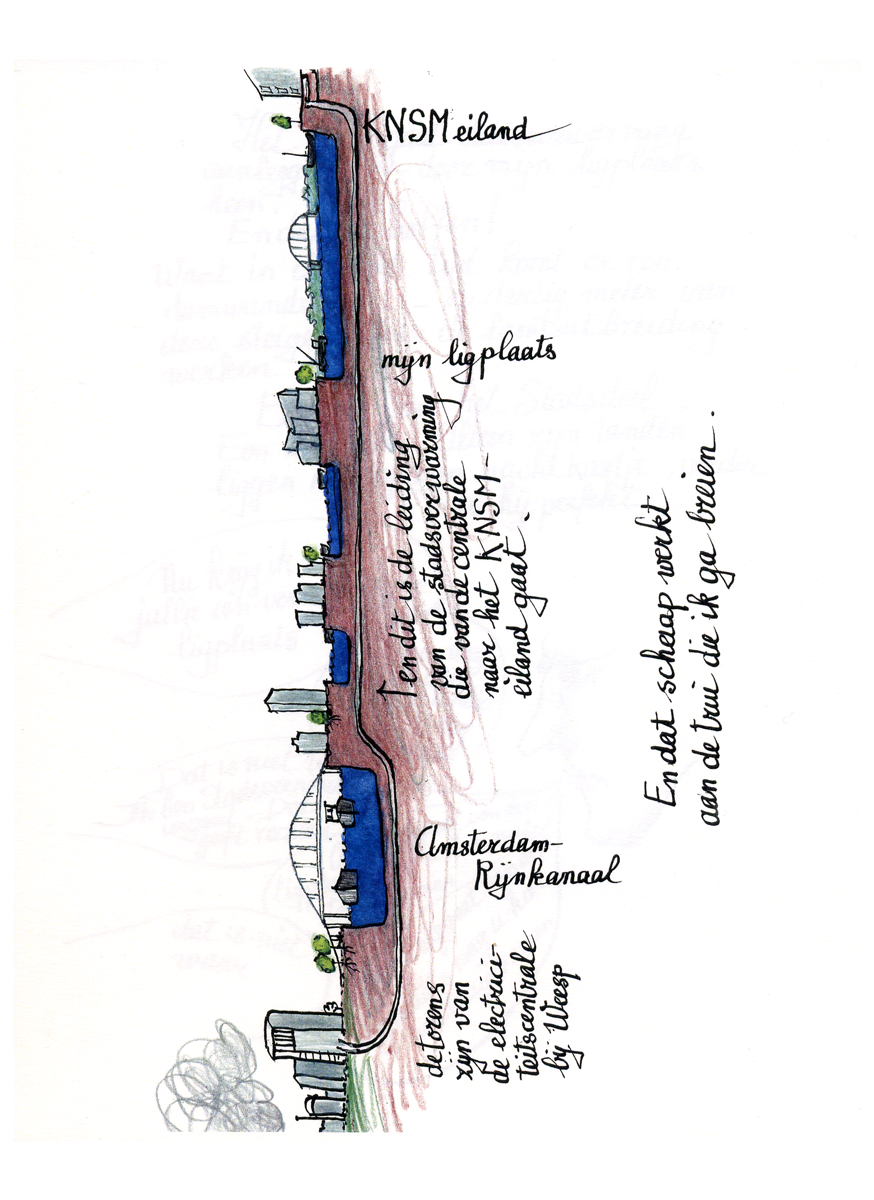 de torens
zijn van
de electrici-
teitscentrale
bij Weesp
Amsterdam-
Rijnkanaal
↑ en dit is de leiding
van de stadsverwarming
die van de centrale
naar het KNSM-
eiland gaat.
mijn ligplaats
KNSM eiland
En dat schaap werkt
aan de trui die ik ga breien.